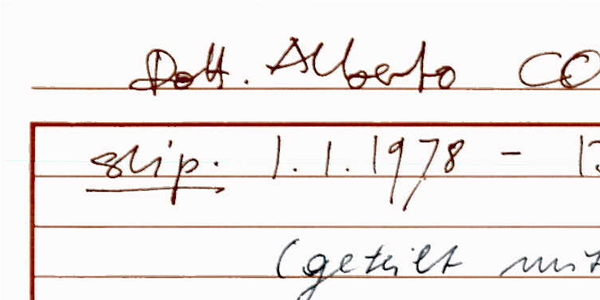 Dott. Alberto CO
stip. 1.1.1978 - 1
(geteilt mit